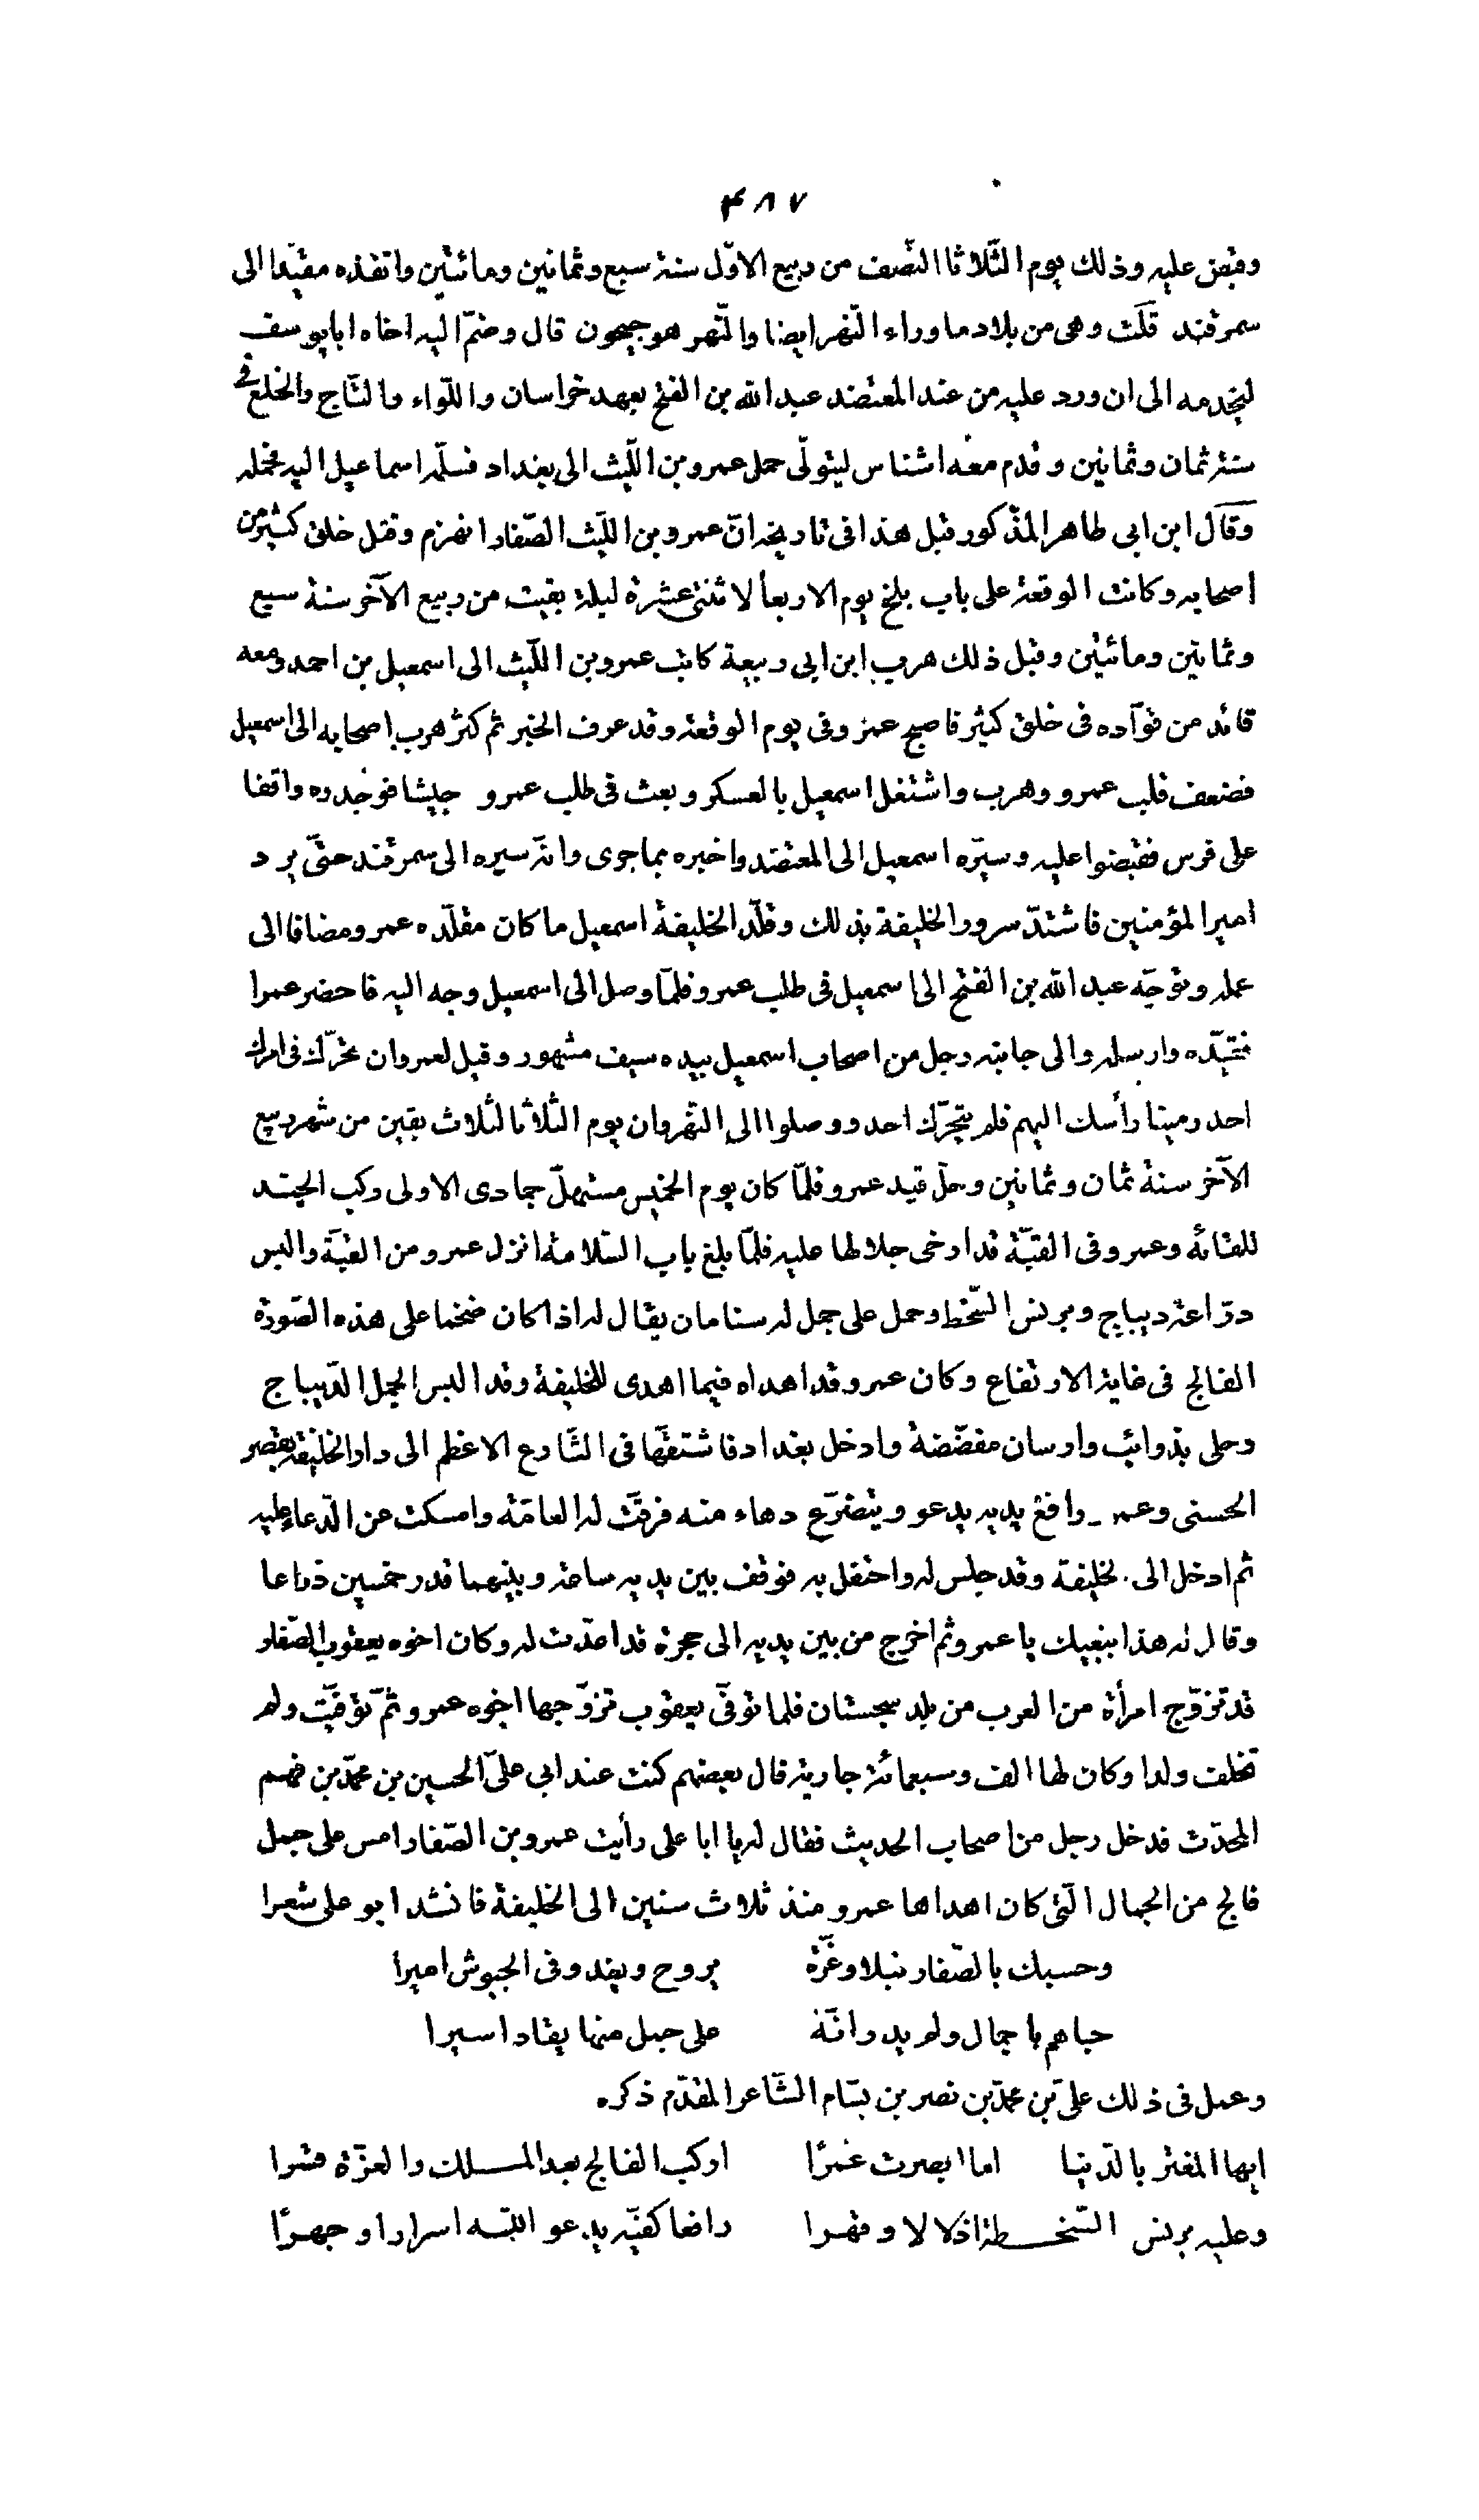 ۴۸۷
وقبض عليه وذلك يوم الثّلاثا النّصف من ربيع الاوّل سنة سبع وثمانين ومائتين وانفذه مقيّدا الى
سمرقند قلت وهى من بلاد ما وراء النّهر ايضا والنّهر هو جيحون قال وضمّ اليه اخاه ابا يوسف
ليخدمه الى ان ورد عليه من عند المعتضد عبد الله بن الفتح بعهد خراسان واللّواء والتّاج والخلع فى
سنة ثمان وثمانين وقدم معه اشناس ليتولّى حمل عمرو بن اللّيث الى بغداد فسلّمه اسماعيل اليه فحمله
وقال ابن ابى طاهر المذكور قبل هذا فى تاريخه انّ عمرو بن اللّيث الصّفار انهزم وقتل خلق كثير من
اصحابه وكانت الوقعة على باب بلخ يوم الاربعأ لاثنتى عشرة ليلة بقيت من ربيع الآخر سنة سبع
وثمانين ومائتين وقبل ذلك هرب ابن ابى ربيعة كاتب عمرو بن اللّيث الى اسمعيل بن احمد ومعه
قائد من قوّاده فى خلق كثير فاصبح عمرو فى يوم الوقعة وقد عرف الخبر ثم كثر هرب اصحابه الى اسمعيل
فضعف قلب عمرو وهرب واشتغل اسمعيل بالعسكر وبعث فى طلب عمرو جيشا فوجدوه واقفا
على فرس فقبضوا عليه وسيّره اسمعيل الى المعتضد واخبره بما جرى وانّه سيره الى سمرقند حتّى يرد
امير المؤمنين فاشتدّ سرور الخليفة بذلك وقلّد الخليفة اسمعيل ما كان مقلّده عمرو مضافا الى
عمله وتوجّه عبد الله بن الفتح الى اسمعيل فى طلب عمرو فلمّا وصل الى اسمعيل وجه اليه فاحضر عمرا
فقيّده وارسله والى جانبه رجل من اصحاب اسمعيل بيده سيف مشهور وقيل لعمرو ان تحرّك فى امرك
احد رمينا رأسك اليهم فلم يتحرّك احد ووصلوا الى النّهروان يوم الثّلاثا لثلاث بقين من شهر ربيع
الآخر سنة ثمان وثمانين وحلّ قيد عمرو فلمّا كان يوم الخميس مستهلّ جمادى الاولى ركب الجند
للقائه وعمرو فى القبّة قد ارخى جلالها عليه فلمّا بلغ باب السّلامة انزل عمرو من القبّة والبس
درّاعة ديباج وبرنس السّخط وحمل على جمل له سنامان يقال له اذا كان ضخما على هذه الصّورة
الفالج فى غاية الارتفاع وكان عمرو قد اهداه فيما اهدى للخليفة وقد البس الجمل الدّيباج
وحلى بذوائب وارسان مفضّضة وادخل بغداد فاشتقّها فى الشّارع الاعظم الى دار الخليفة بقصر
الحسنى وعمرو رافع يديه يدعو ويتضرّع دهاء منه فرقّت له العامّة وامسكت عن الدّعاء عليه
ثم ادخل الى الخليفة وقد جلس له واحتفل به فوقف بين يديه ساعة وبينهما قدر خمسين ذراعا
وقال له هذا ببغيك يا عمرو ثم اخرج من بين يديه الى حجرة قد اعدّت له وكان اخوه يعقوب الصّفار
قد تزوّج امرأة من العرب من بلد سجستان فلما توفّى يعقوب تزوّجها اخوه عمرو ثمّ توفّيت ولم
تخلف ولدا وكان لها الف وسبعمائة جارية قال بعضهم كنت عند ابى علىّ الحسين بن محمّد بن فهم
المحدّث فدخل رجل من اصحاب الحديث فقال له يا ابا على رأيت عمرو بن الصّفار امس على جمل
فالج من الجمال الّتى كان اهداها عمرو منذ ثلاث سنين الى الخليفة فانشد ابو على شعرا
وحسبك بالصّفار نبلا وعزّة يروح ويغدو فى الجيوش اميرا
حباهم باجمال ولم يدر انّه على جمل منها يقاد اسيرا
وعمل فى ذلك علىّ بن محمّد بن نصر بن بسّام الشّاعر المقدّم ذكره
ايها المغتر بالدّنيا اما ابصرت عمرًا اركب الفالج بعد المسلك والعزّة قسرا
وعليه برنس السّخطة اذلالا وقهرا رافعا كفّيه يدعو اللّه اسرارا وجهرًا